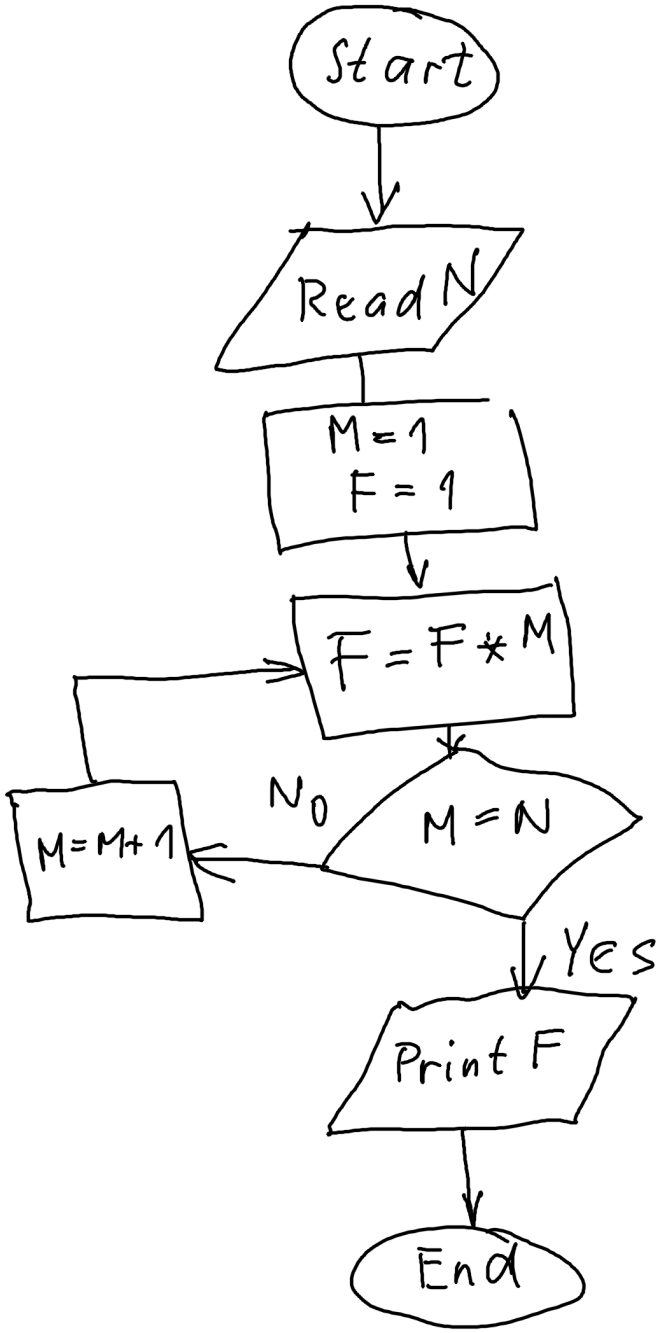 Start
Read N
M = 1
F = 1
F = F * M
M = N
No
M = M + 1
Yes
Print F
End